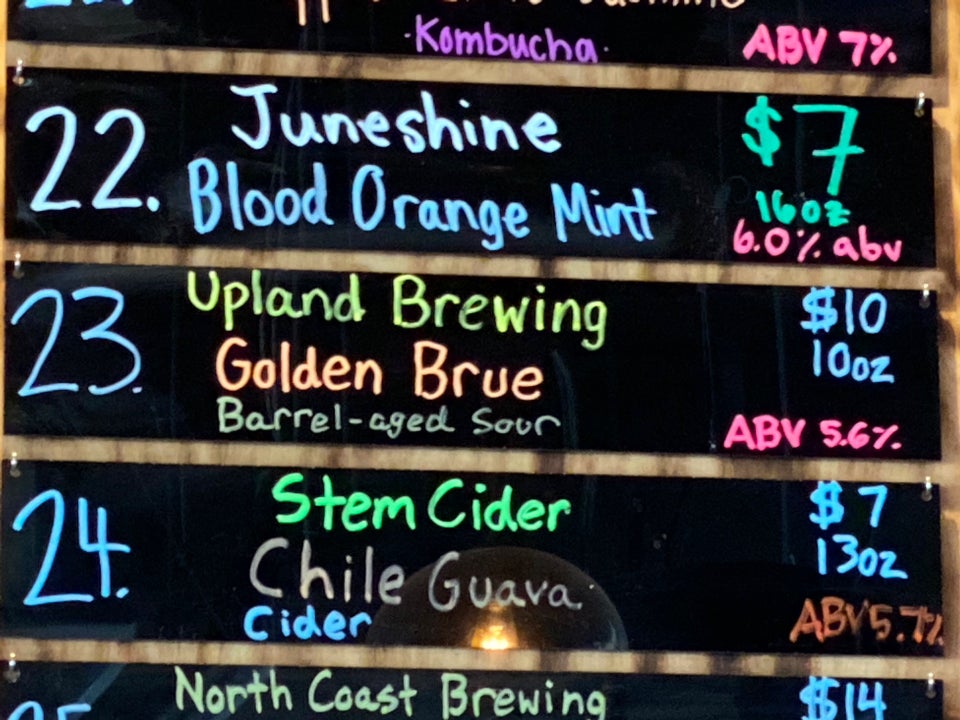 ·Kombucha·
ABV 7%
22.
Juneshine
Blood Orange Mint
$7
16oz
6.0% abv
23.
Upland Brewing
Golden Brue
Barrel-aged Sour
$10
10oz
ABV 5.6%
24.
Stem Cider
Chile Guava
Cider
$7
13oz
ABV 5.7%
North Coast Brewing
$14